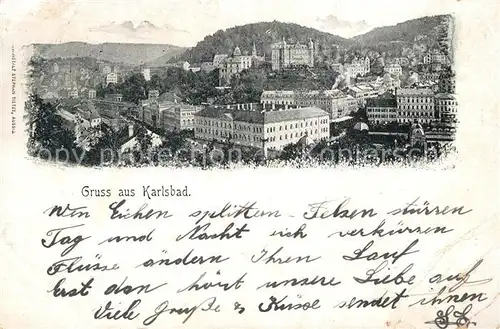 Gruss aus Karlsbad.
Wen Eichen splittern Felsen stürren
Tag und Nacht sich verkürzen
Flüsse ändern Ihren Lauf
Erst dan hört unsere Liebe auf
Viele Grüße & Küsse sendet ihnen